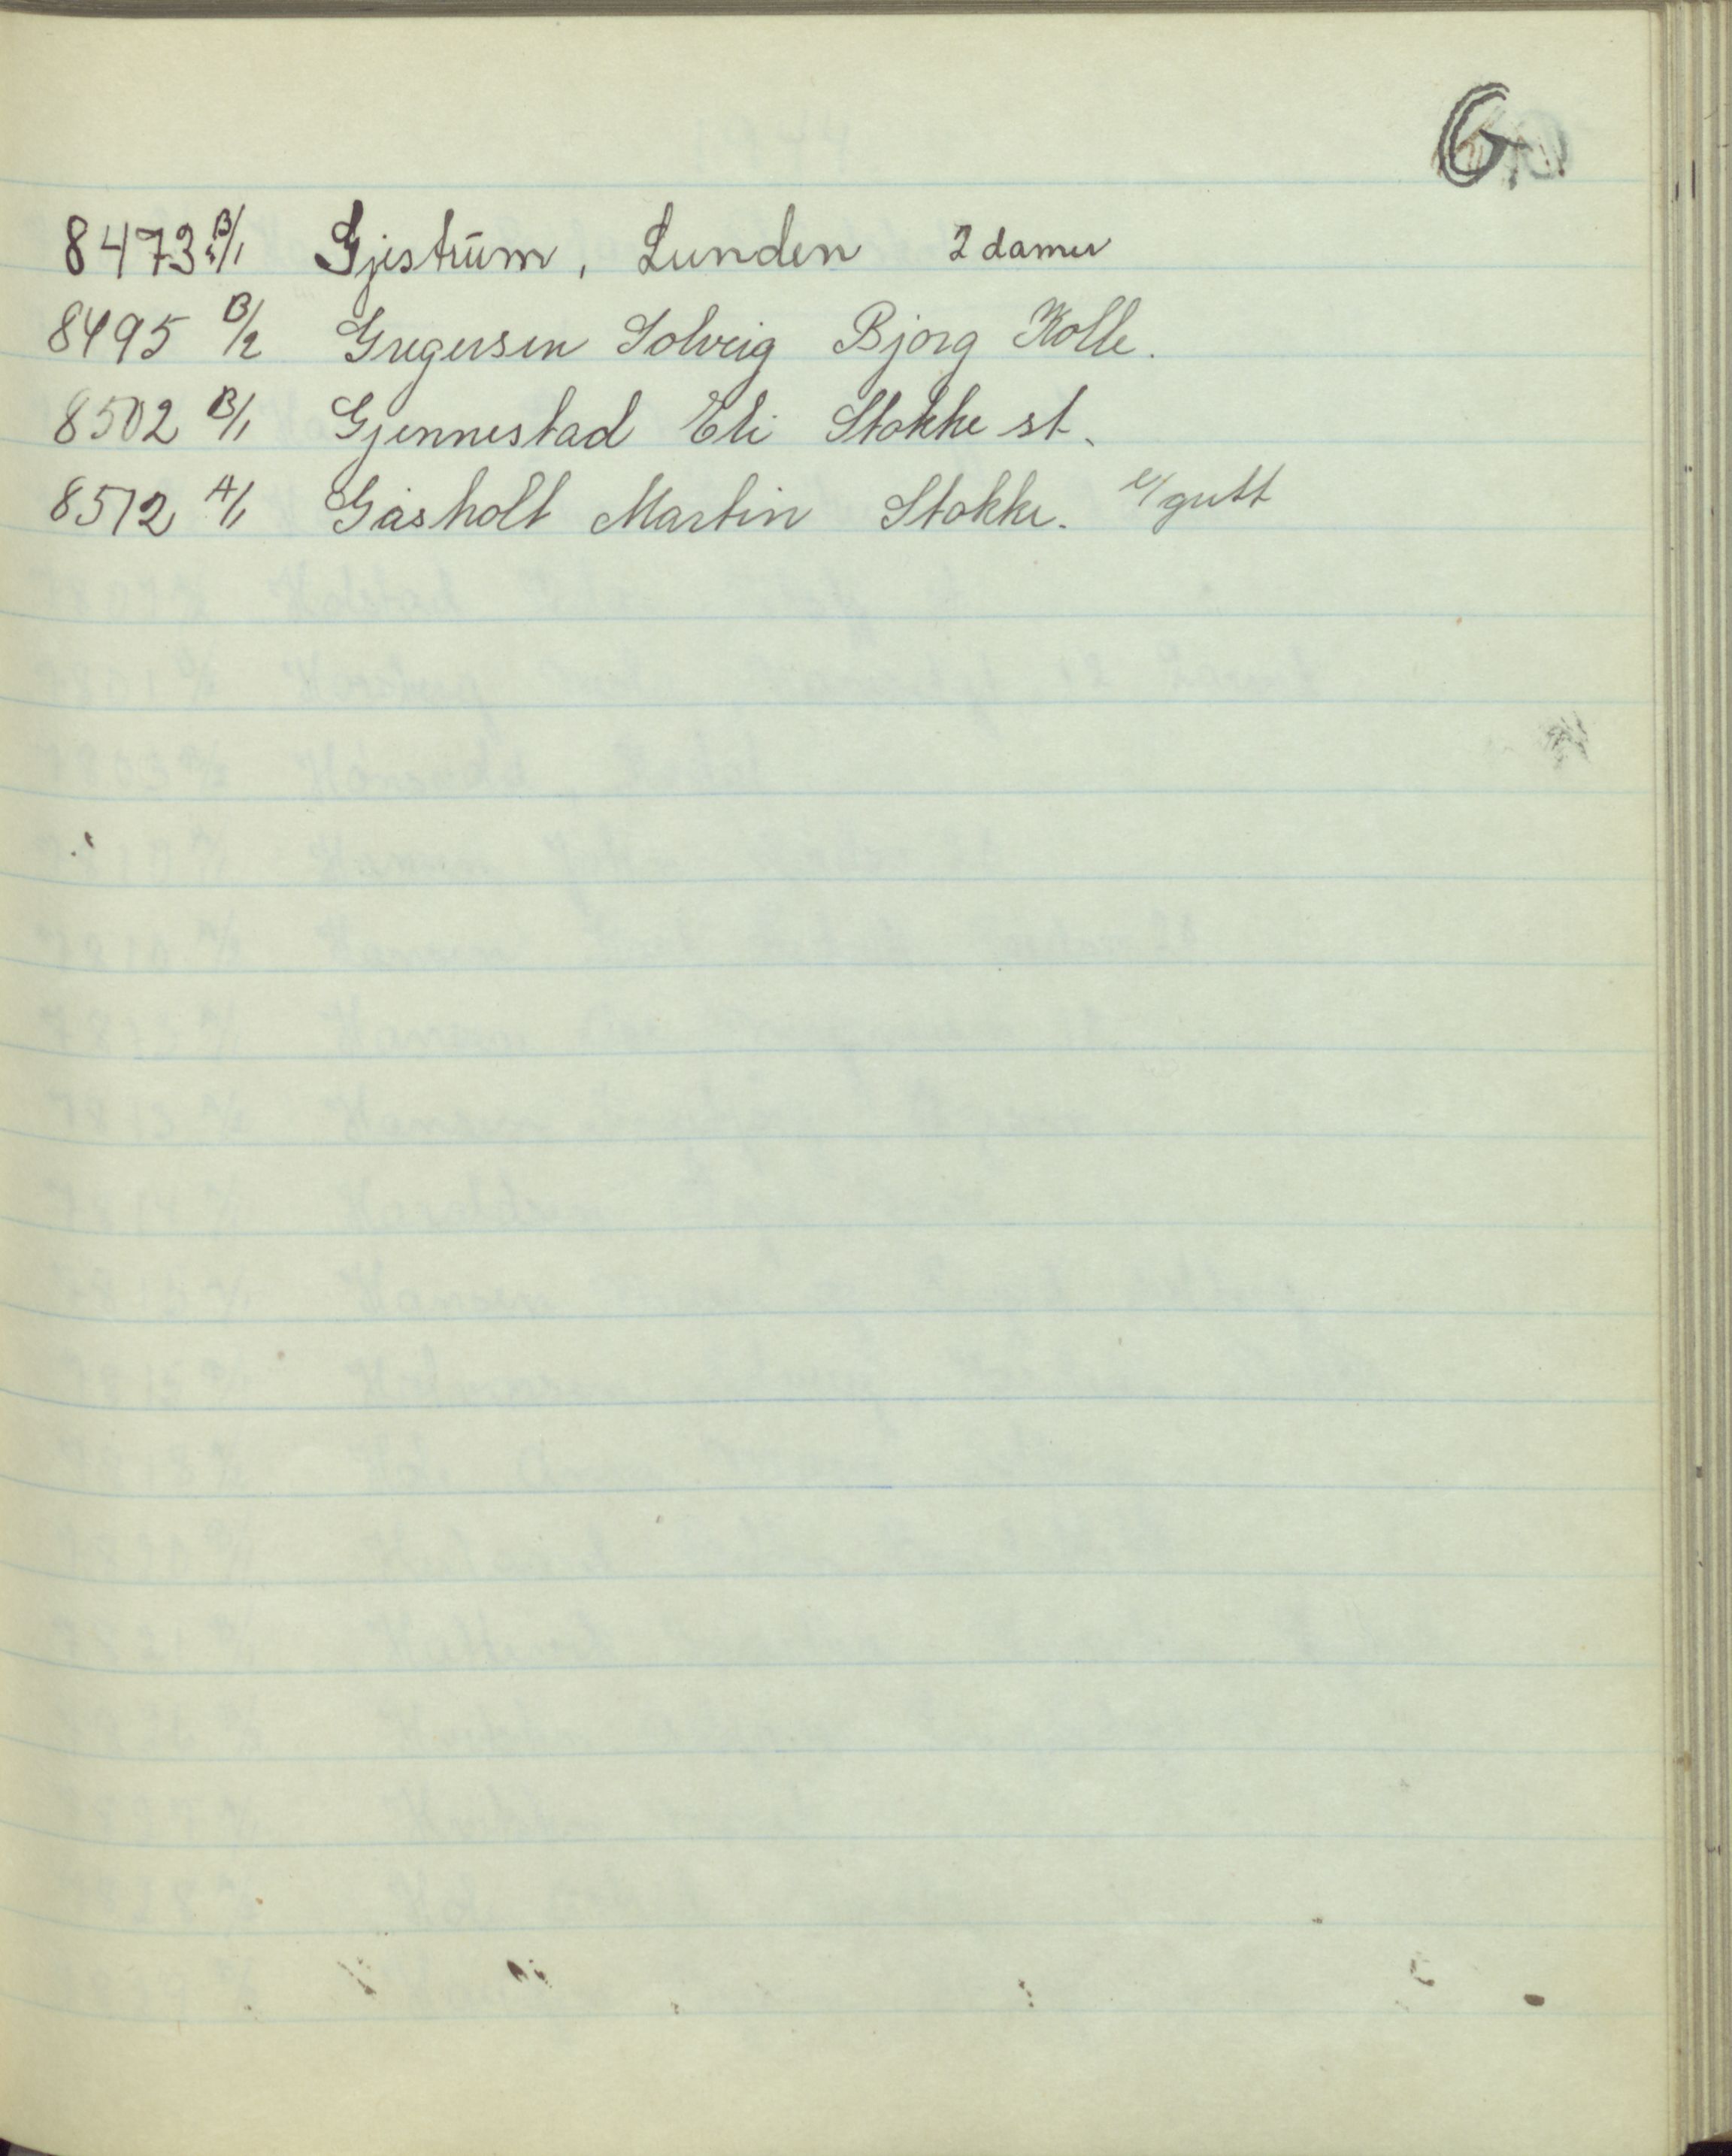 G
8473 B/1 Gjestrüm, Lunden 2 damer
8495 B/2 Gregersen Solveig Bjorg Kolle.
8502 B/1 Gjennestad Eli Stokke st.
8512 A/1 Gåsholt Martin Stokke. e/gutt